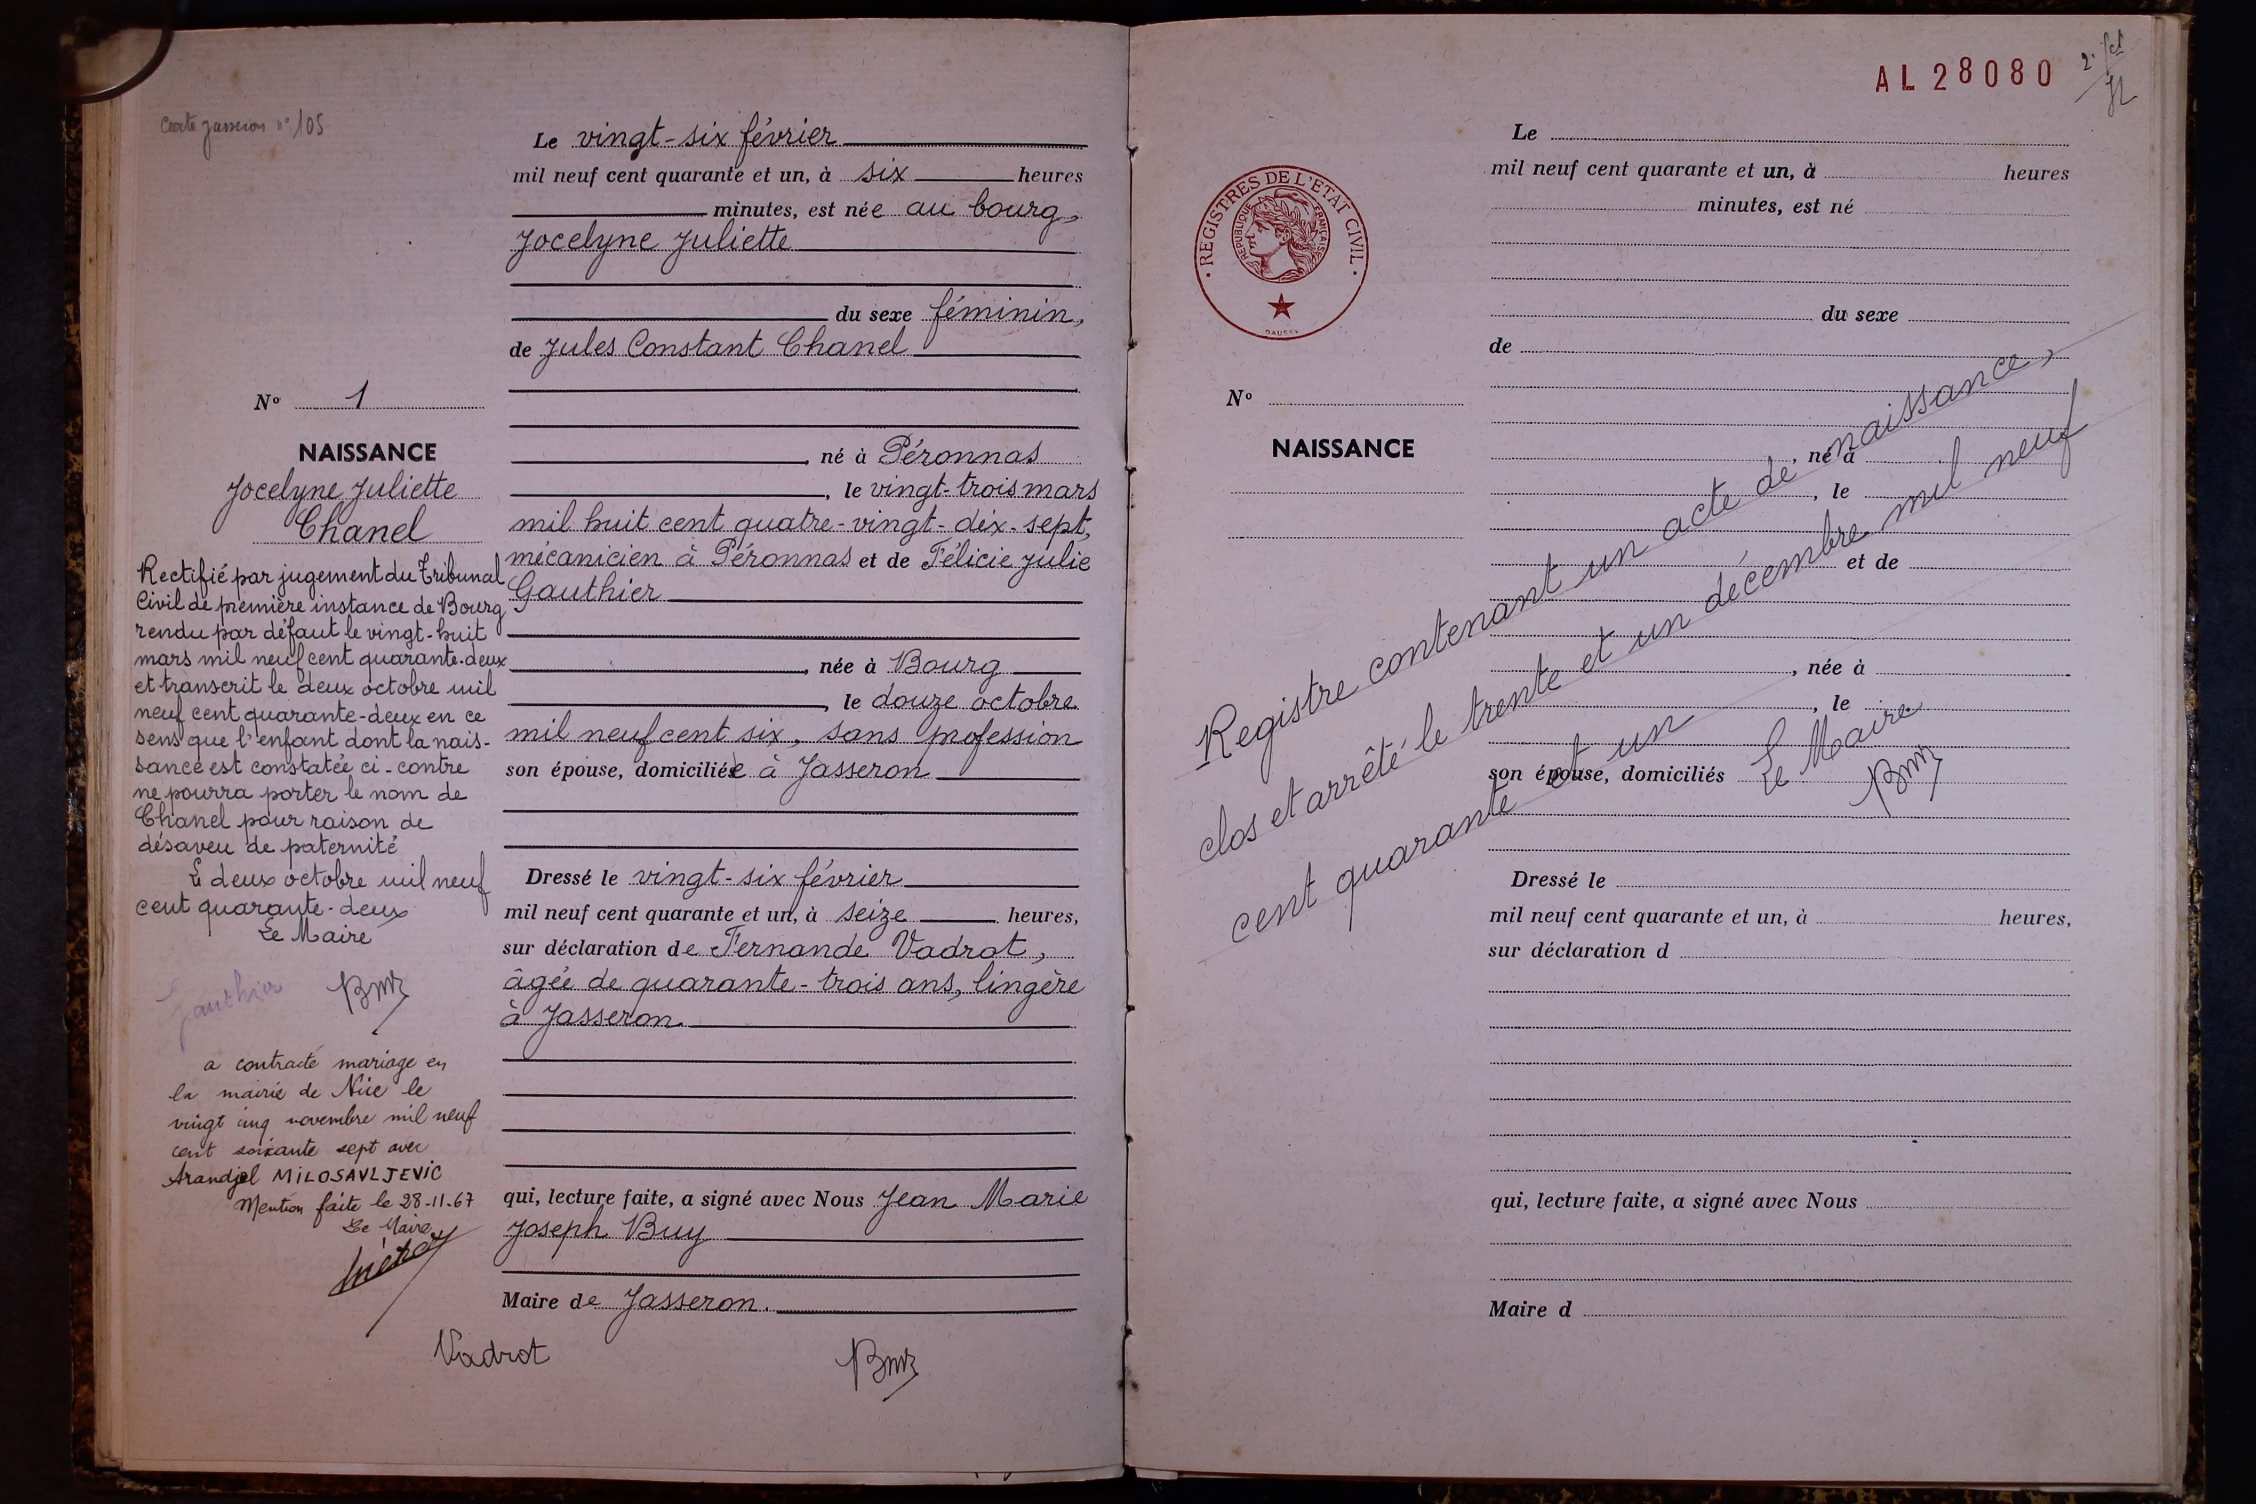 n° 105
Le vingt-six février
mil neuf cent quarante et un, à six heures
minutes, est née au bourg,
Jocelyne Juliette
du sexe féminin,
de Jules Constant Chanel
né à Péronnas
, le vingt-trois mars
mil huit cent quatre-vingt-dix-sept,
mécanicien à Péronnas et de Félicie Julie
Gauthier
, née à Bourg
, le douze octobre
mil neuf cent six, sans profession
son épouse, domiciliée à Jasseron
Dressé le vingt-six février
mil neuf cent quarante et un, à seize heures,
sur déclaration de Fernande Vadrot,
âgée de quarante-trois ans, lingère
à Jasseron.
qui, lecture faite, a signé avec Nous Jean Marie
Joseph Buy
Maire de Jasseron.
Vadrot
N° 1
NAISSANCE
Jocelyne Juliette
Chanel
Rectifié par jugement du Tribunal
Civil de première instance de Bourg
rendu par défaut le vingt-huit
mars mil neuf cent quarante-deux
et transcrit le deux octobre mil
neuf cent quarante-deux en ce
sens que l'enfant dont la nais-
sance est constatée ci-contre
ne pourra porter le nom de
Chanel pour raison de
désaveu de paternité
Le deux octobre mil neuf
cent quarante-deux
Le Maire
Gauthier
a contracté mariage en
la mairie de Nice le
vingt cinq novembre mil neuf
cent soixante sept avec
Arandjel MILOSAVLJEVIC
Mention faite le 28-11-67
Le Maire
AL28080
REGISTRES DE L'ETAT CIVIL
REPUBLIQUE FRANÇAISE
Le
mil neuf cent quarante et un, à heures
minutes, est né
du sexe
de
N°
NAISSANCE
, né à
, le
et de
, née à
, le
son épouse, domiciliés
Dressé le
mil neuf cent quarante et un, à heures,
sur déclaration d
qui, lecture faite, a signé avec Nous
Maire d
Registre contenant un acte de naissance,
clos et arrêté le trente et un décembre mil neuf
cent quarante et un
Le Maire